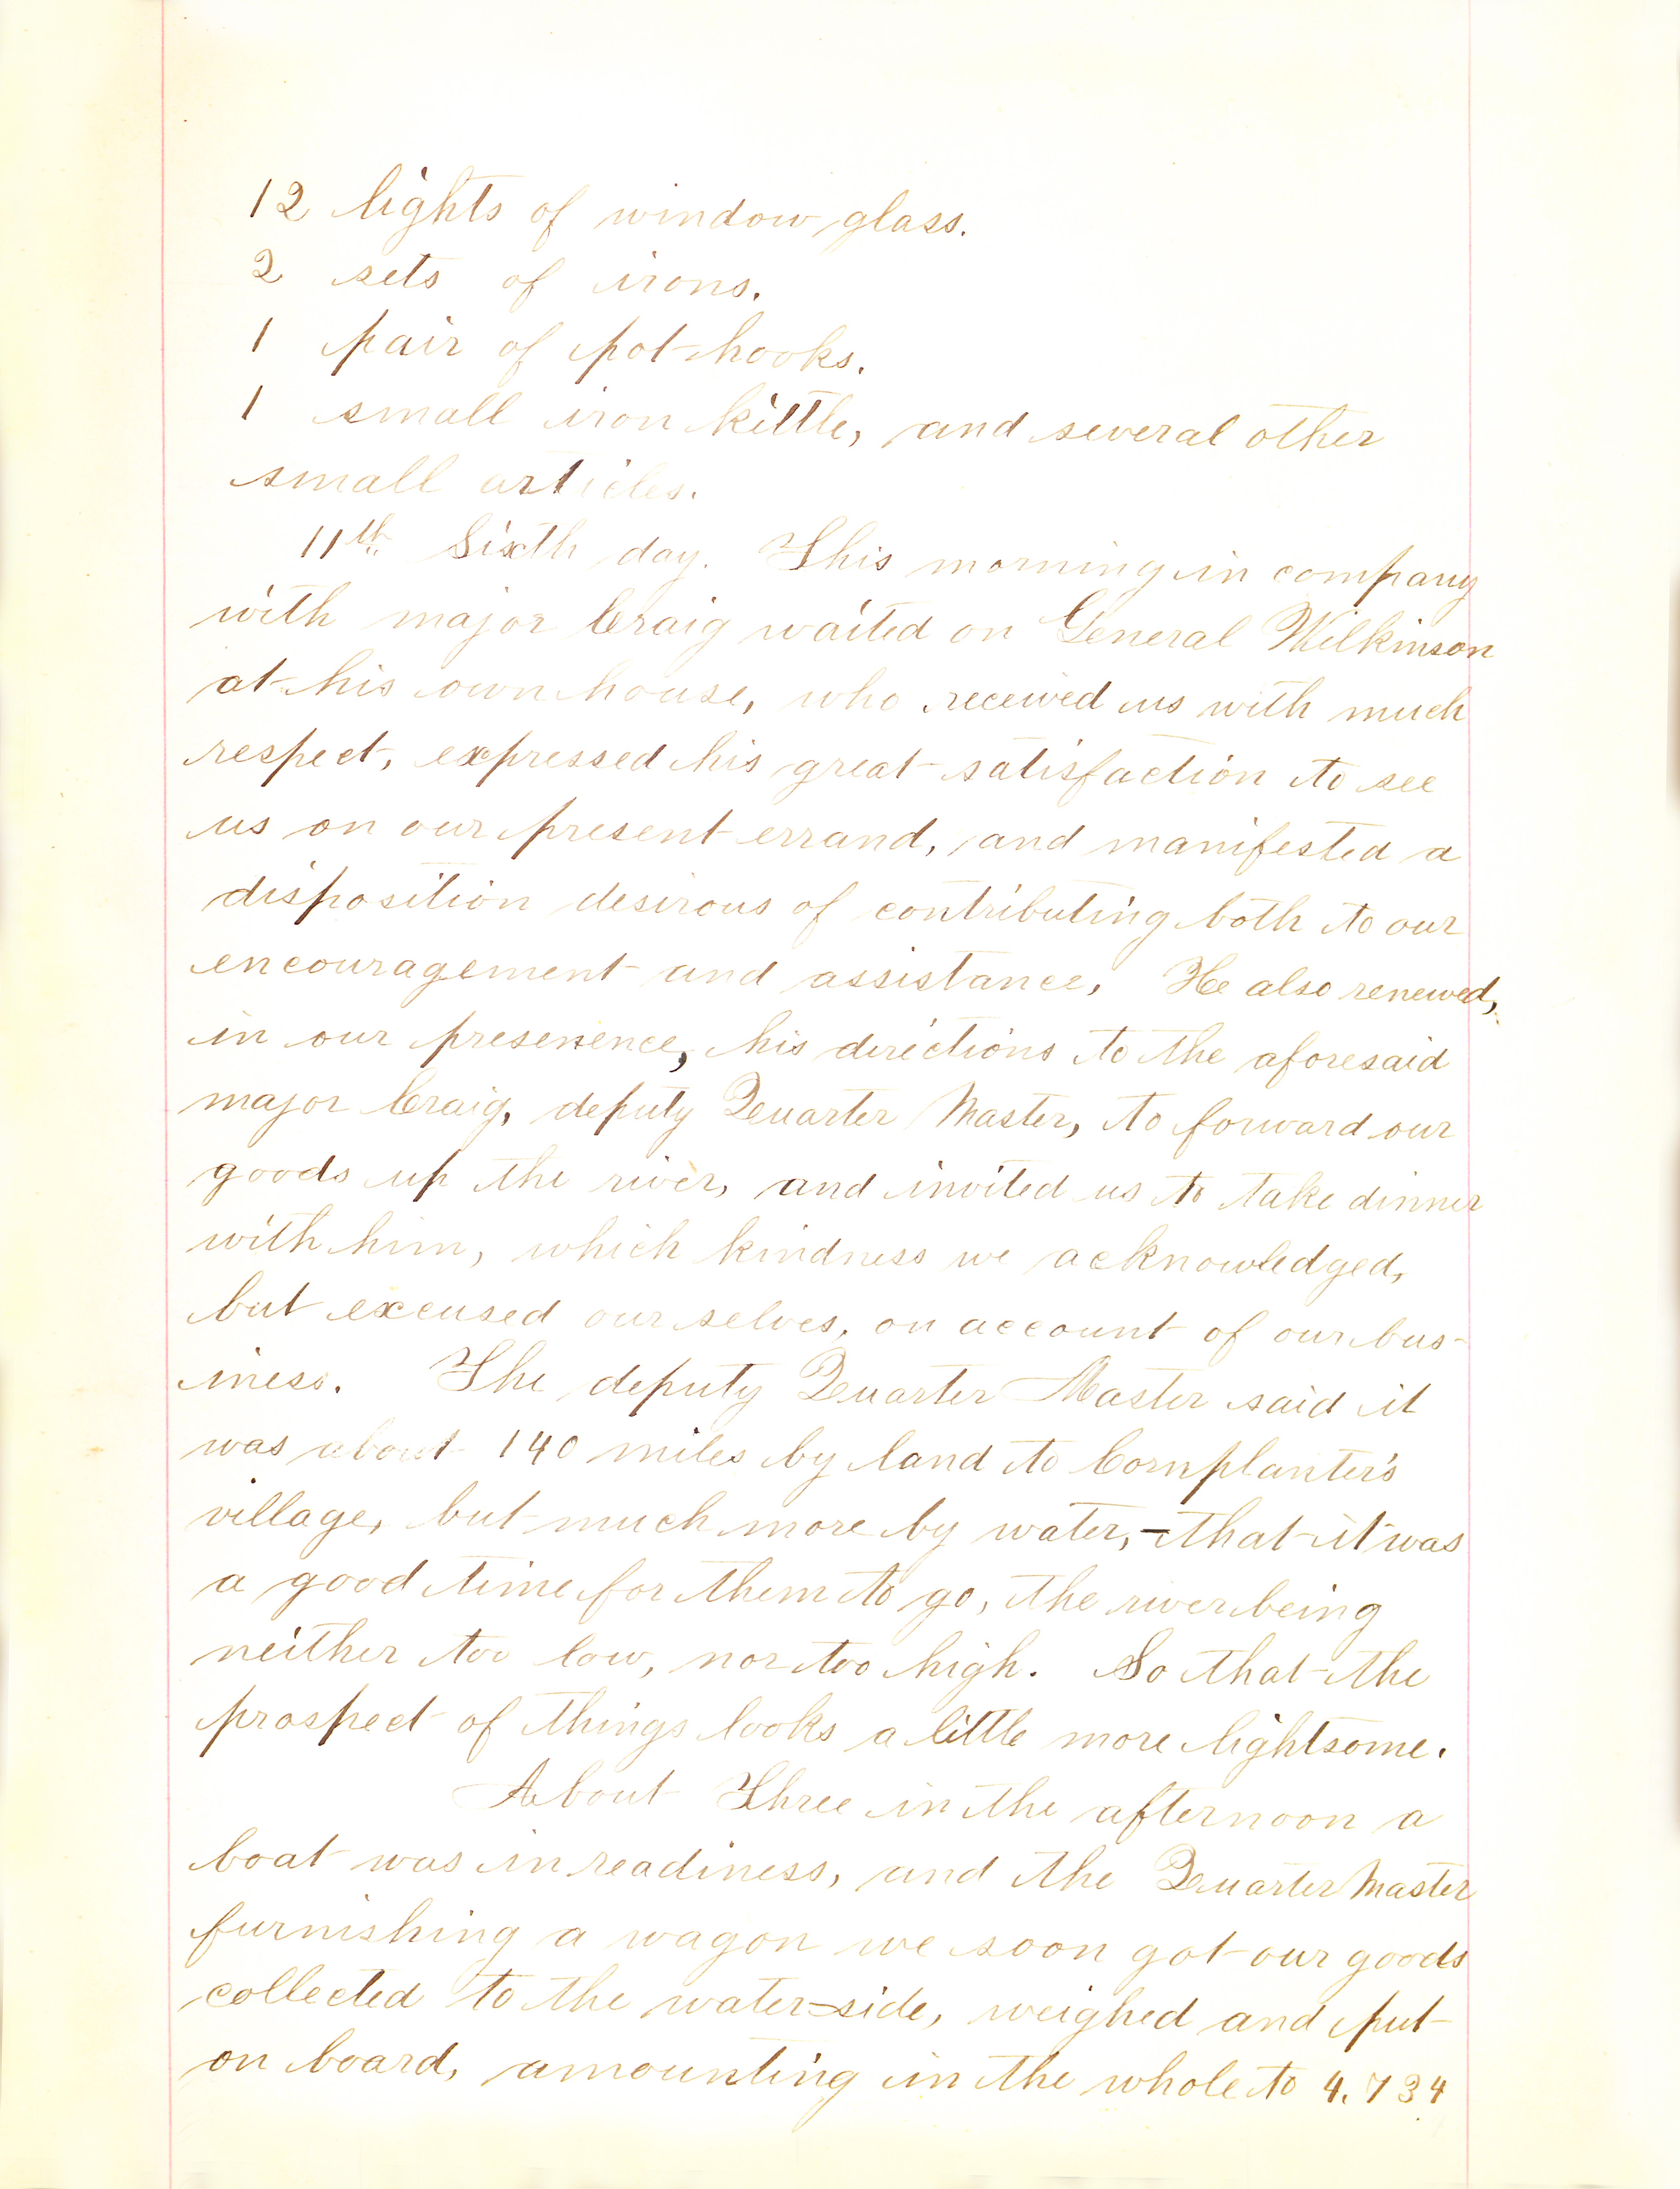 12 lights of window glass.
2 sets of irons.
1 pair of pot-hooks.
1 small iron kittle, and several other
small articles.
11th Sixth day. This morning in company
with major Craig waited on General Wilkinson
at his own house, who received us with much
respect, expressed his great satisfaction to see
us on our present errand, and manifested a
disposition desirous of contributing both to our
encouragement and assistance, He also renewed,
in our presenence, his directions to the aforesaid
major Craig, deputy Quarter Master, to forward our
goods up the river, and invited us to take dinner
with him, which kindness we acknowledged,
but excused ourselves, on account of our bus-
iness. The deputy Quarter Master said it
was about 140 miles by land to Cornplanter's
village, but much more by water, - that it was
a good time for them to go, the river being
neither too low, nor too high. So that the
prospect of things looks a little more lightsome.
About Three in the afternoon a
boat was in readiness, and the Quarter Master
furnishing a wagon we soon got our goods
collected to the water-side, weighed and put
on board, amounting in the whole to 4.734